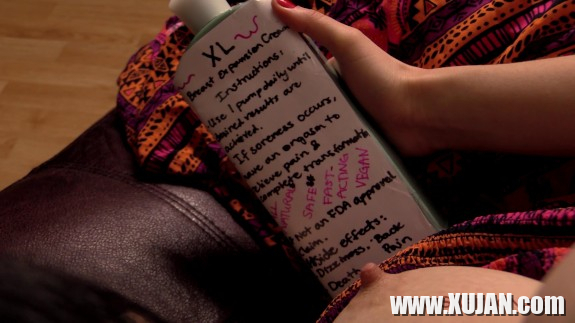 XL
Breast Expansion Cream
Instructions:
Use 1 pump daily until
desired results are
achieved.
If soreness occurs,
have an orgasm to
relieve pain &
complete transformation
NATURAL
SAFE*
FAST-
ACTING
VEGAN
Not an FDA approved
claim.
Side effects:
Dizziness. Back
Death. Pain
www.XUJAN.com